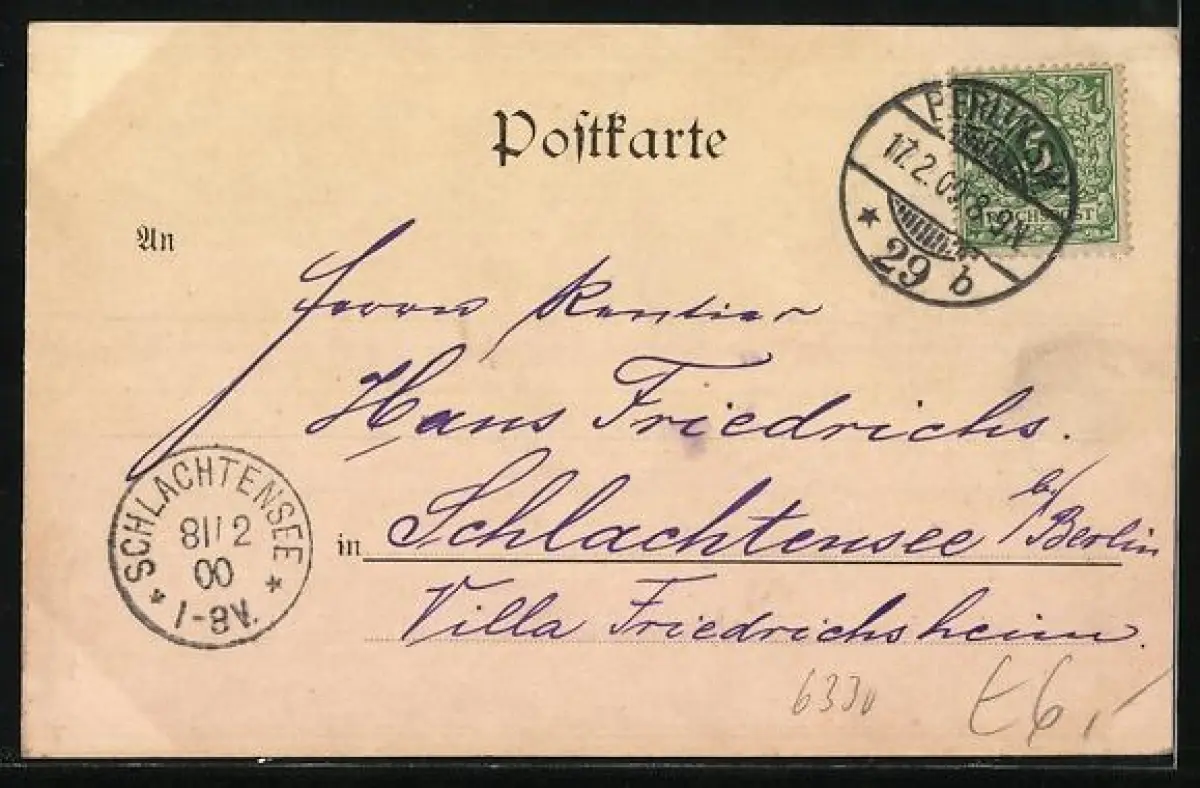 Postkarte
BERLIN SW
17.2.00 8-9N
* 29 b
REICHSPOST
An
Herrn Rentier
Hans Friedrichs.
in Schlachtensee b/Berlin
Villa Friedrichsheim.
* SCHLACHTENSEE *
18/2
00
1-8V.
6330
6,-